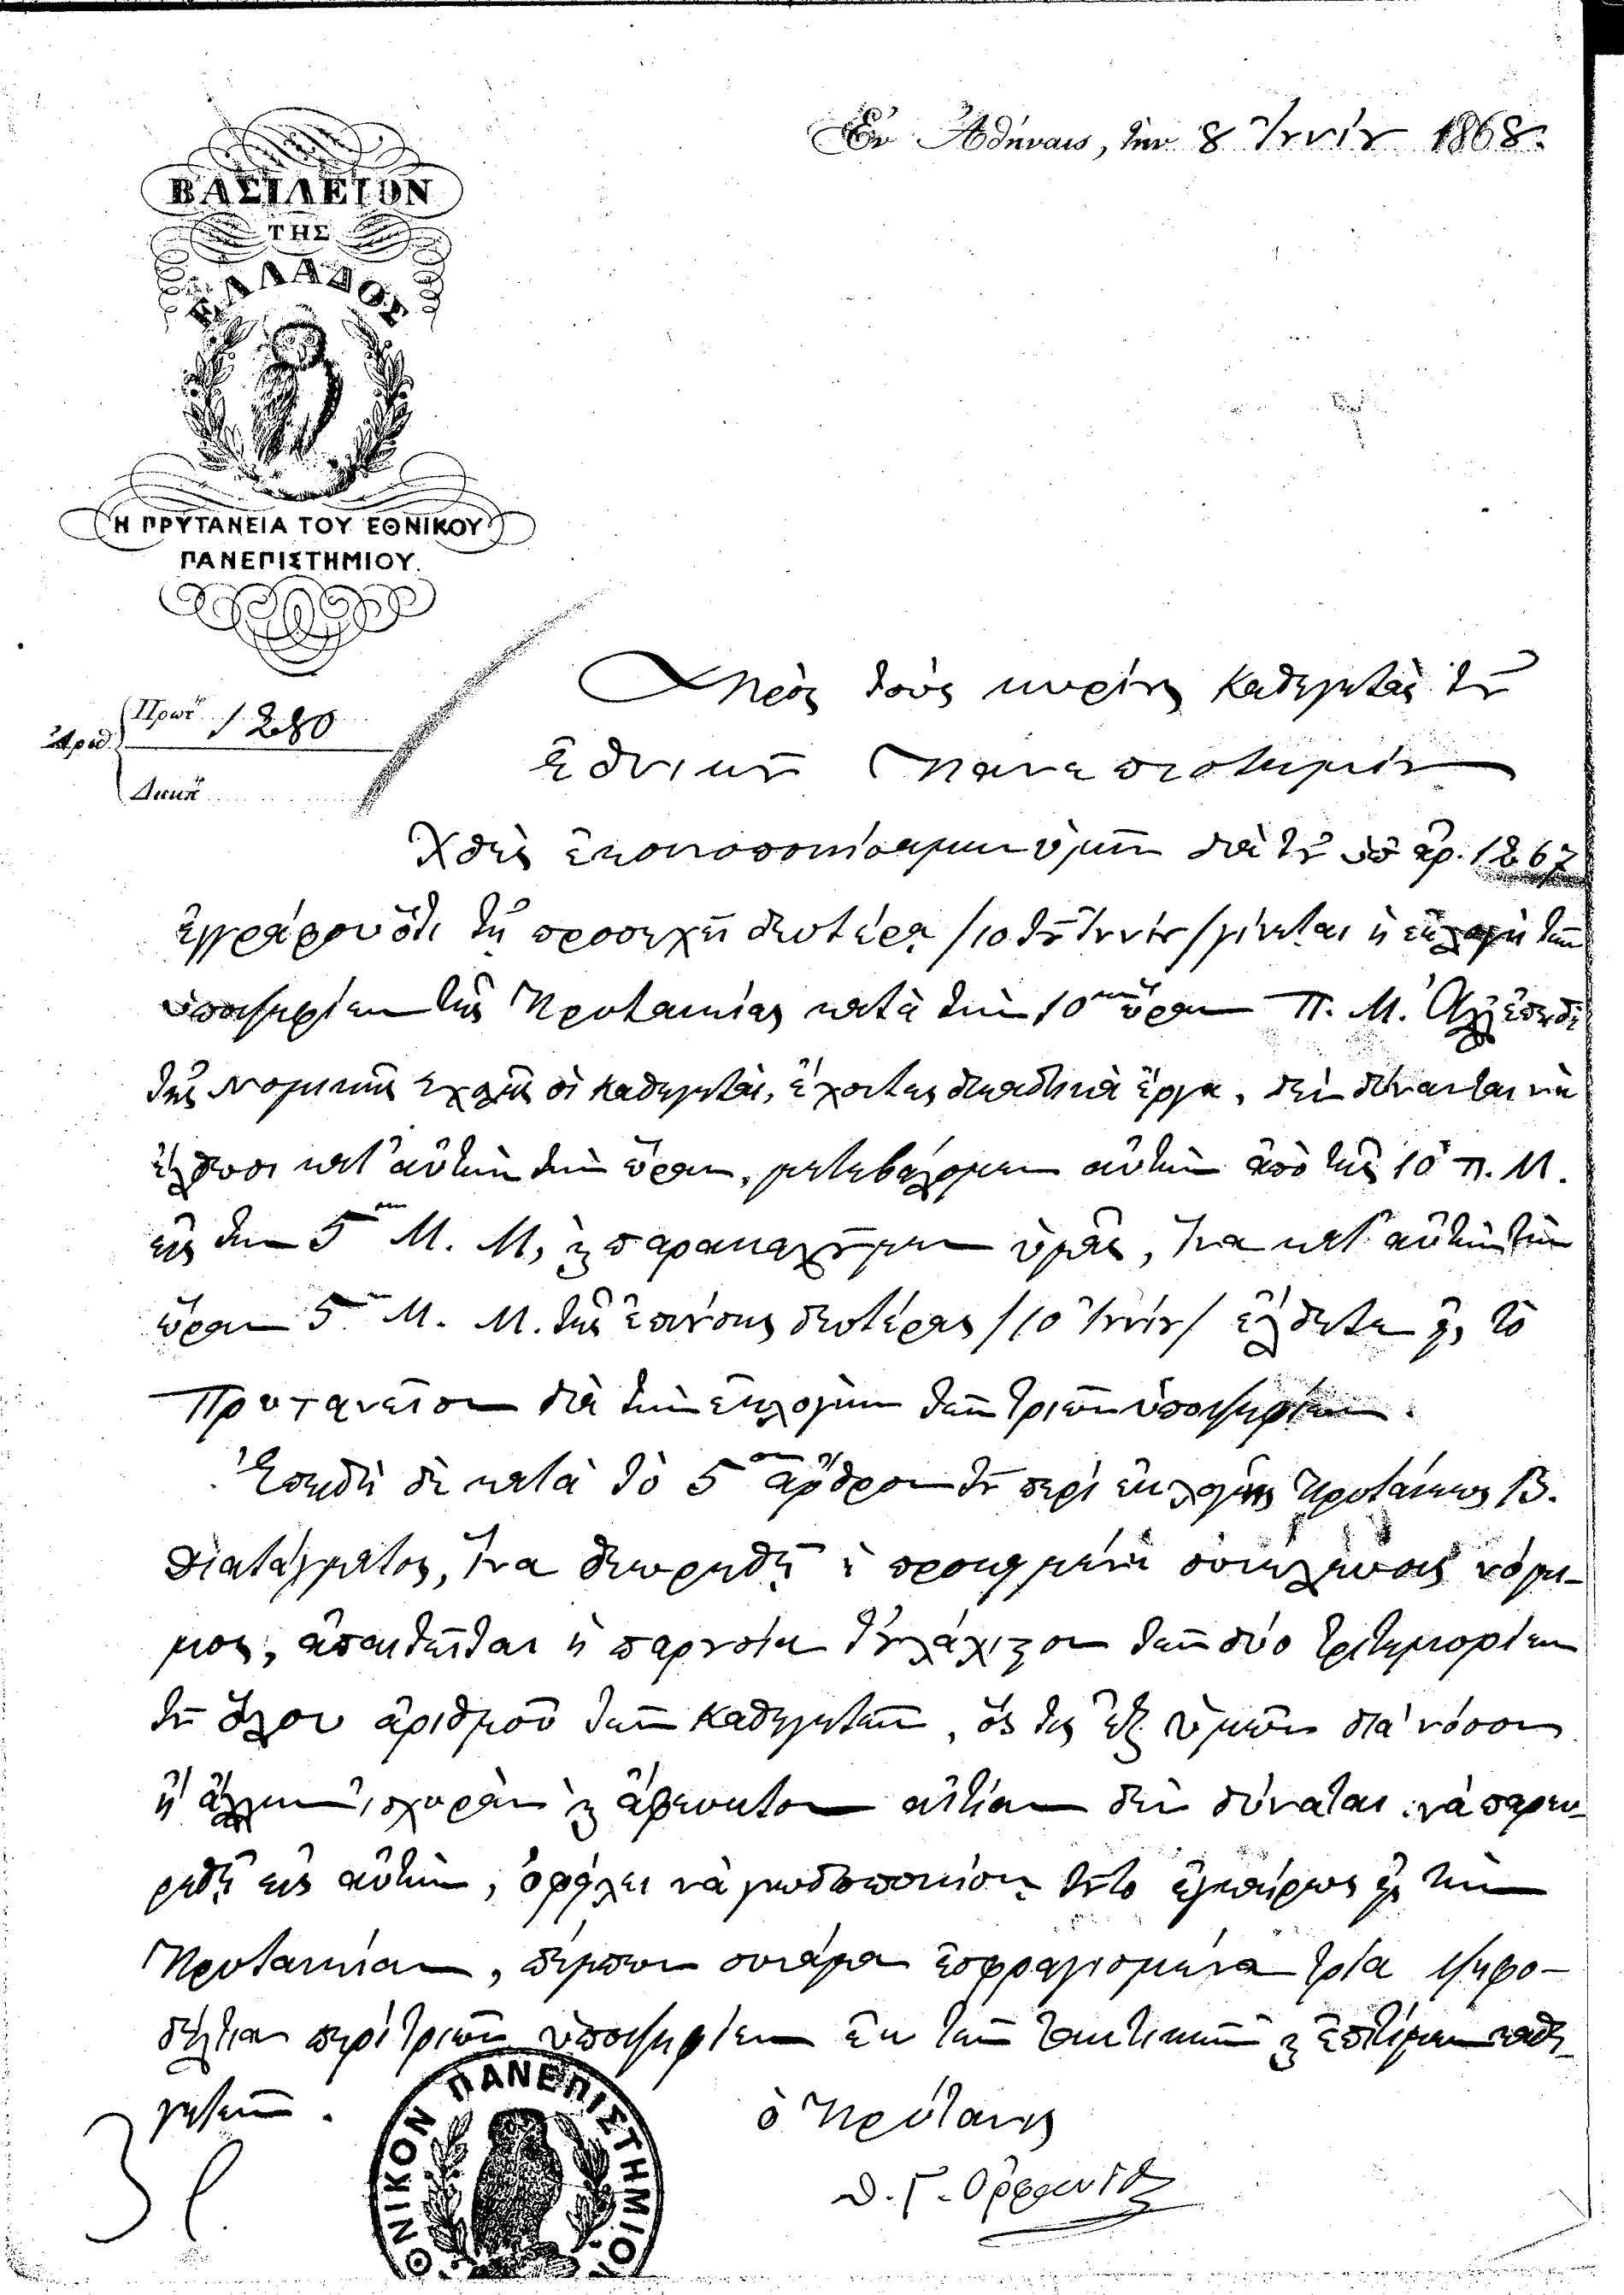 Ἐν Ἀθήναις, τὴν 8 Ἰουνίου 1868.
ΒΑΣΙΛΕΙΟΝ
ΤΗΣ
ΕΛΛΑΔΟΣ
Η ΠΡΥΤΑΝΕΙΑ ΤΟΥ ΕΘΝΙΚΟΥ
ΠΑΝΕΠΙΣΤΗΜΙΟΥ.
Ἀριθ. Πρωτ. 1280
Διεκπ.
Πρὸς τοὺς κυρίους Καθηγητὰς τοῦ
Ἐθνικοῦ Πανεπιστημίου
Χθὲς ἐκοινοποιήσαμεν ὑμῖν διὰ τοῦ ὑπ' ἀρ. 1267
ἐγγράφου ὅτι τῇ προσεχεῖ δευτέρᾳ /10 τοῦ Ἰουνίου/ γίνεται ἡ ἐκλογὴ τῶν
ὑποψηφίων τῆς Πρυτανείας κατὰ τὴν 10ην ὥραν Π. Μ. Ἀλλ' ἐπειδὴ
τῆς Νομικῆς Σχολῆς οἱ Καθηγηταί, ἔχοντες δικαστικὰ ἔργα, δὲν δύνανται νὰ
ἔλθωσι κατ' αὐτὴν τὴν ὥραν, μεταβάλλομεν αὐτὴν ἀπὸ τῆς 10 π. Μ.
εἰς τὴν 5ην Μ. Μ, καὶ παρακαλοῦμεν ὑμᾶς, ἵνα κατ' αὐτὴν τὴν
ὥραν 5ην Μ. Μ. τῆς ἐπιούσης δευτέρας /10 Ἰουνίου/ ἔλθητε εἰς τὸ
Πρυτανεῖον διὰ τὴν ἐκλογὴν τῶν τριῶν ὑποψηφίων.
Ἐπειδὴ δὲ κατὰ τὸ 5ον ἄρθρον τοῦ περὶ ἐκλογῆς Πρυτάνεως Β.
Διατάγματος, ἵνα θεωρηθῇ ἡ προκειμένη συνέλευσις νόμι-
μος, ἀπαιτεῖται ἡ παρουσία τοὐλάχιστον τῶν δύο τριτημορίων
τοῦ ὅλου ἀριθμοῦ τῶν Καθηγητῶν, ὅς τις ἐξ ὑμῶν διὰ νόσον
ἢ ἄλλην ἰσχυρὰν καὶ ἄφευκτον αἰτίαν δὲν δύναται νὰ παρευ-
ρεθῇ εἰς αὐτήν, ὀφείλει νὰ γνωστοποιήσῃ τοῦτο ἐγκαίρως εἰς τὴν
Πρυτανείαν, πέμπων συνάμα ἐσφραγισμένα τρία ψηφο-
δέλτια περὶ τριῶν ὑποψηφίων ἐκ τῶν τακτικῶν καὶ ἐπιτίμων καθη-
γητῶν.
ὁ Πρύτανις
Θ. Γ. Ὀρφανίδης
ΕΘΝΙΚΟΝ ΠΑΝΕΠΙΣΤΗΜΙΟΝ